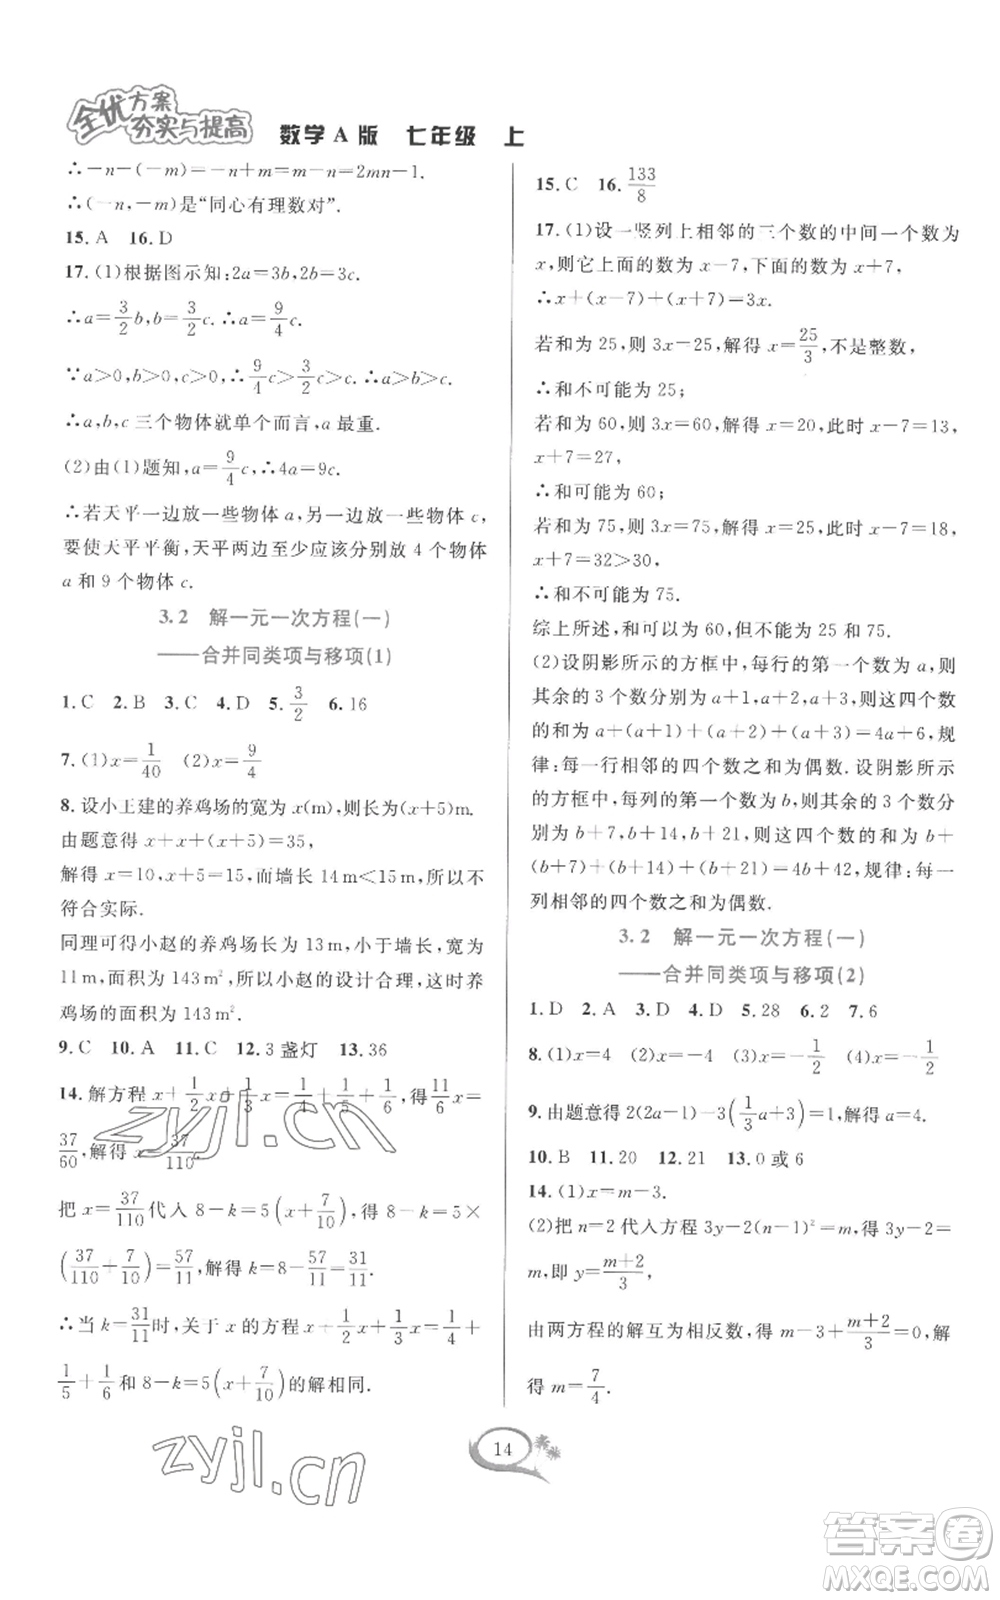 全优方案
夯实与提高
数学A版 七年级 上
∴-n-(-m)=-n+m=m-n=2mn-1.
∴(-n,-m)是“同心有理数对”.
15.A 16.D
17.(1)根据图示知:2a=3b,2b=3c.
∴a=3/2b,b=3/2c.∴a=9/4c.
∵a>0,b>0,c>0,∴9/4c>3/2c>c.
∴a,b,c三个物体就单个而言,a最重.
(2)由(1)题知,a=9/4c,∴4a=9c.
∴若天平一边放一些物体a,另一边放一些物体c,
要使天平平衡,天平两边至少应该分别放4个物体
a和9个物体c.
3.2 解一元一次方程(一)
——合并同类项与移项(1)
1.C 2.B 3.C 4.D 5.3/2 6.16
7.(1)x=1/40 (2)x=9/4
8.设小王建的养鸡场的宽为x(m),则长为(x+5)m.
由题意得x+x+(x+5)=35,
解得x=10,x+5=15,而墙长14m<15m,所以不
符合实际.
同理可得小赵的养鸡场长为13m,小于墙长,宽为
11m,面积为143m²,所以小赵的设计合理,这时养
鸡场的面积为143m².
9.C 10.A 11.C 12.3盏灯 13.36
14.解方程x+1/2x+1/3x=1/3+1/4+1/5+1/6,得11/6x=
37/60,解得x=37/110.
把x=37/110代入8-k=5(x+7/10),得8-k=5×
(37/110+7/10)=57/11,解得k=8-57/11=31/11.
∴当k=31/11时,关于x的方程x+1/2x+1/3x=1/3+1/4+
1/5+1/6和8-k=5(x+7/10)的解相同.
15.C 16.133/8
17.(1)设一竖列上相邻的三个数的中间一个数为
x,则它上面的数为x-7,下面的数为x+7,
∴x+(x-7)+(x+7)=3x.
若和为25,则3x=25,解得x=25/3,不是整数,
∴和不可能为25;
若和为60,则3x=60,解得x=20,此时x-7=13,
x+7=27,
∴和可能为60;
若和为75,则3x=75,解得x=25,此时x-7=18,
x+7=32>30.
∴和不可能为75.
综上所述,和可以为60,但不能为25和75.
(2)设阴影所示的方框中,每行的第一个数为a,则
其余的3个数分别为a+1,a+2,a+3,则这四个数
的和为a+(a+1)+(a+2)+(a+3)=4a+6,规
律:每一行相邻的四个数之和为偶数.设阴影所示
的方框中,每列的第一个数为b,则其余的3个数分
别为b+7,b+14,b+21,则这四个数的和为b+
(b+7)+(b+14)+(b+21)=4b+42,规律:每一
列相邻的四个数之和为偶数.
3.2 解一元一次方程(一)
——合并同类项与移项(2)
1.D 2.A 3.D 4.D 5.28 6.2 7.6
8.(1)x=4 (2)x=-4 (3)x=-1/2 (4)x=-1/2
9.由题意得2(2a-1)-3(1/3a+3)=1,解得a=4.
10.B 11.20 12.21 13.0或6
14.(1)x=m-3.
(2)把n=2代入方程3y-2(n-1)²=m,得3y-2=
m,即y=m+2/3,
由两方程的解互为相反数,得m-3+m+2/3=0,解
得m=7/4.
14
zyjl.cn
zyjl.cn
答案卷
MXQE.COM